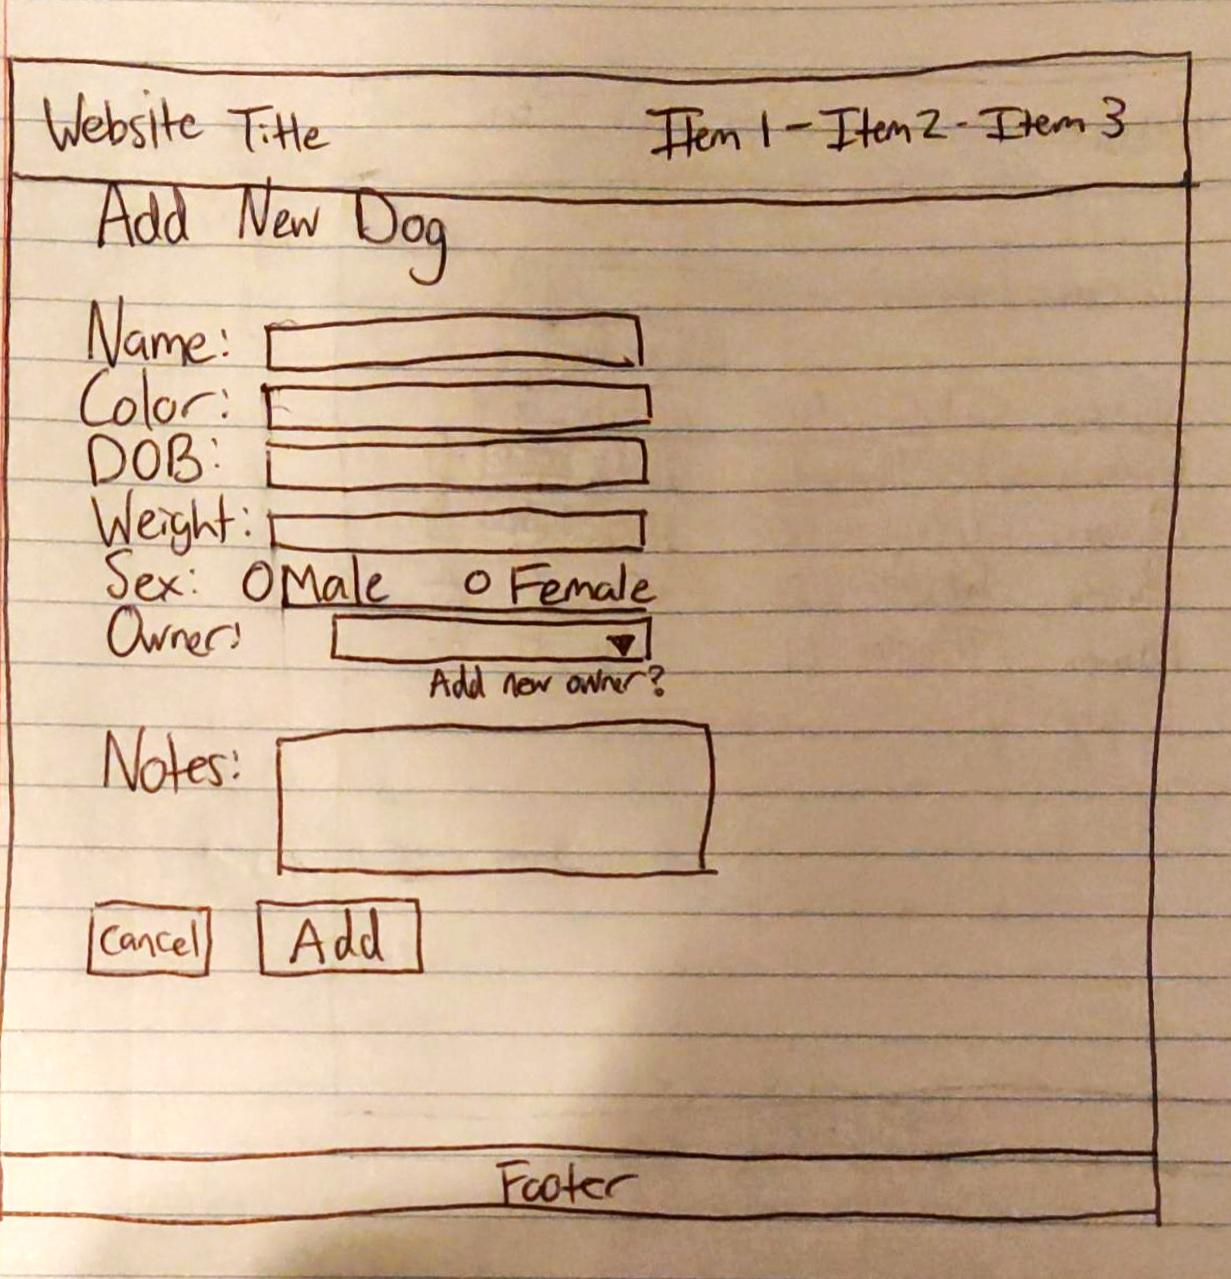 Website Title Item 1 - Item 2 - Item 3
Add New Dog
Name:
Color:
DOB:
Weight:
Sex: Male Female
Owner:
Add new owner?
Notes:
Cancel Add
Footer